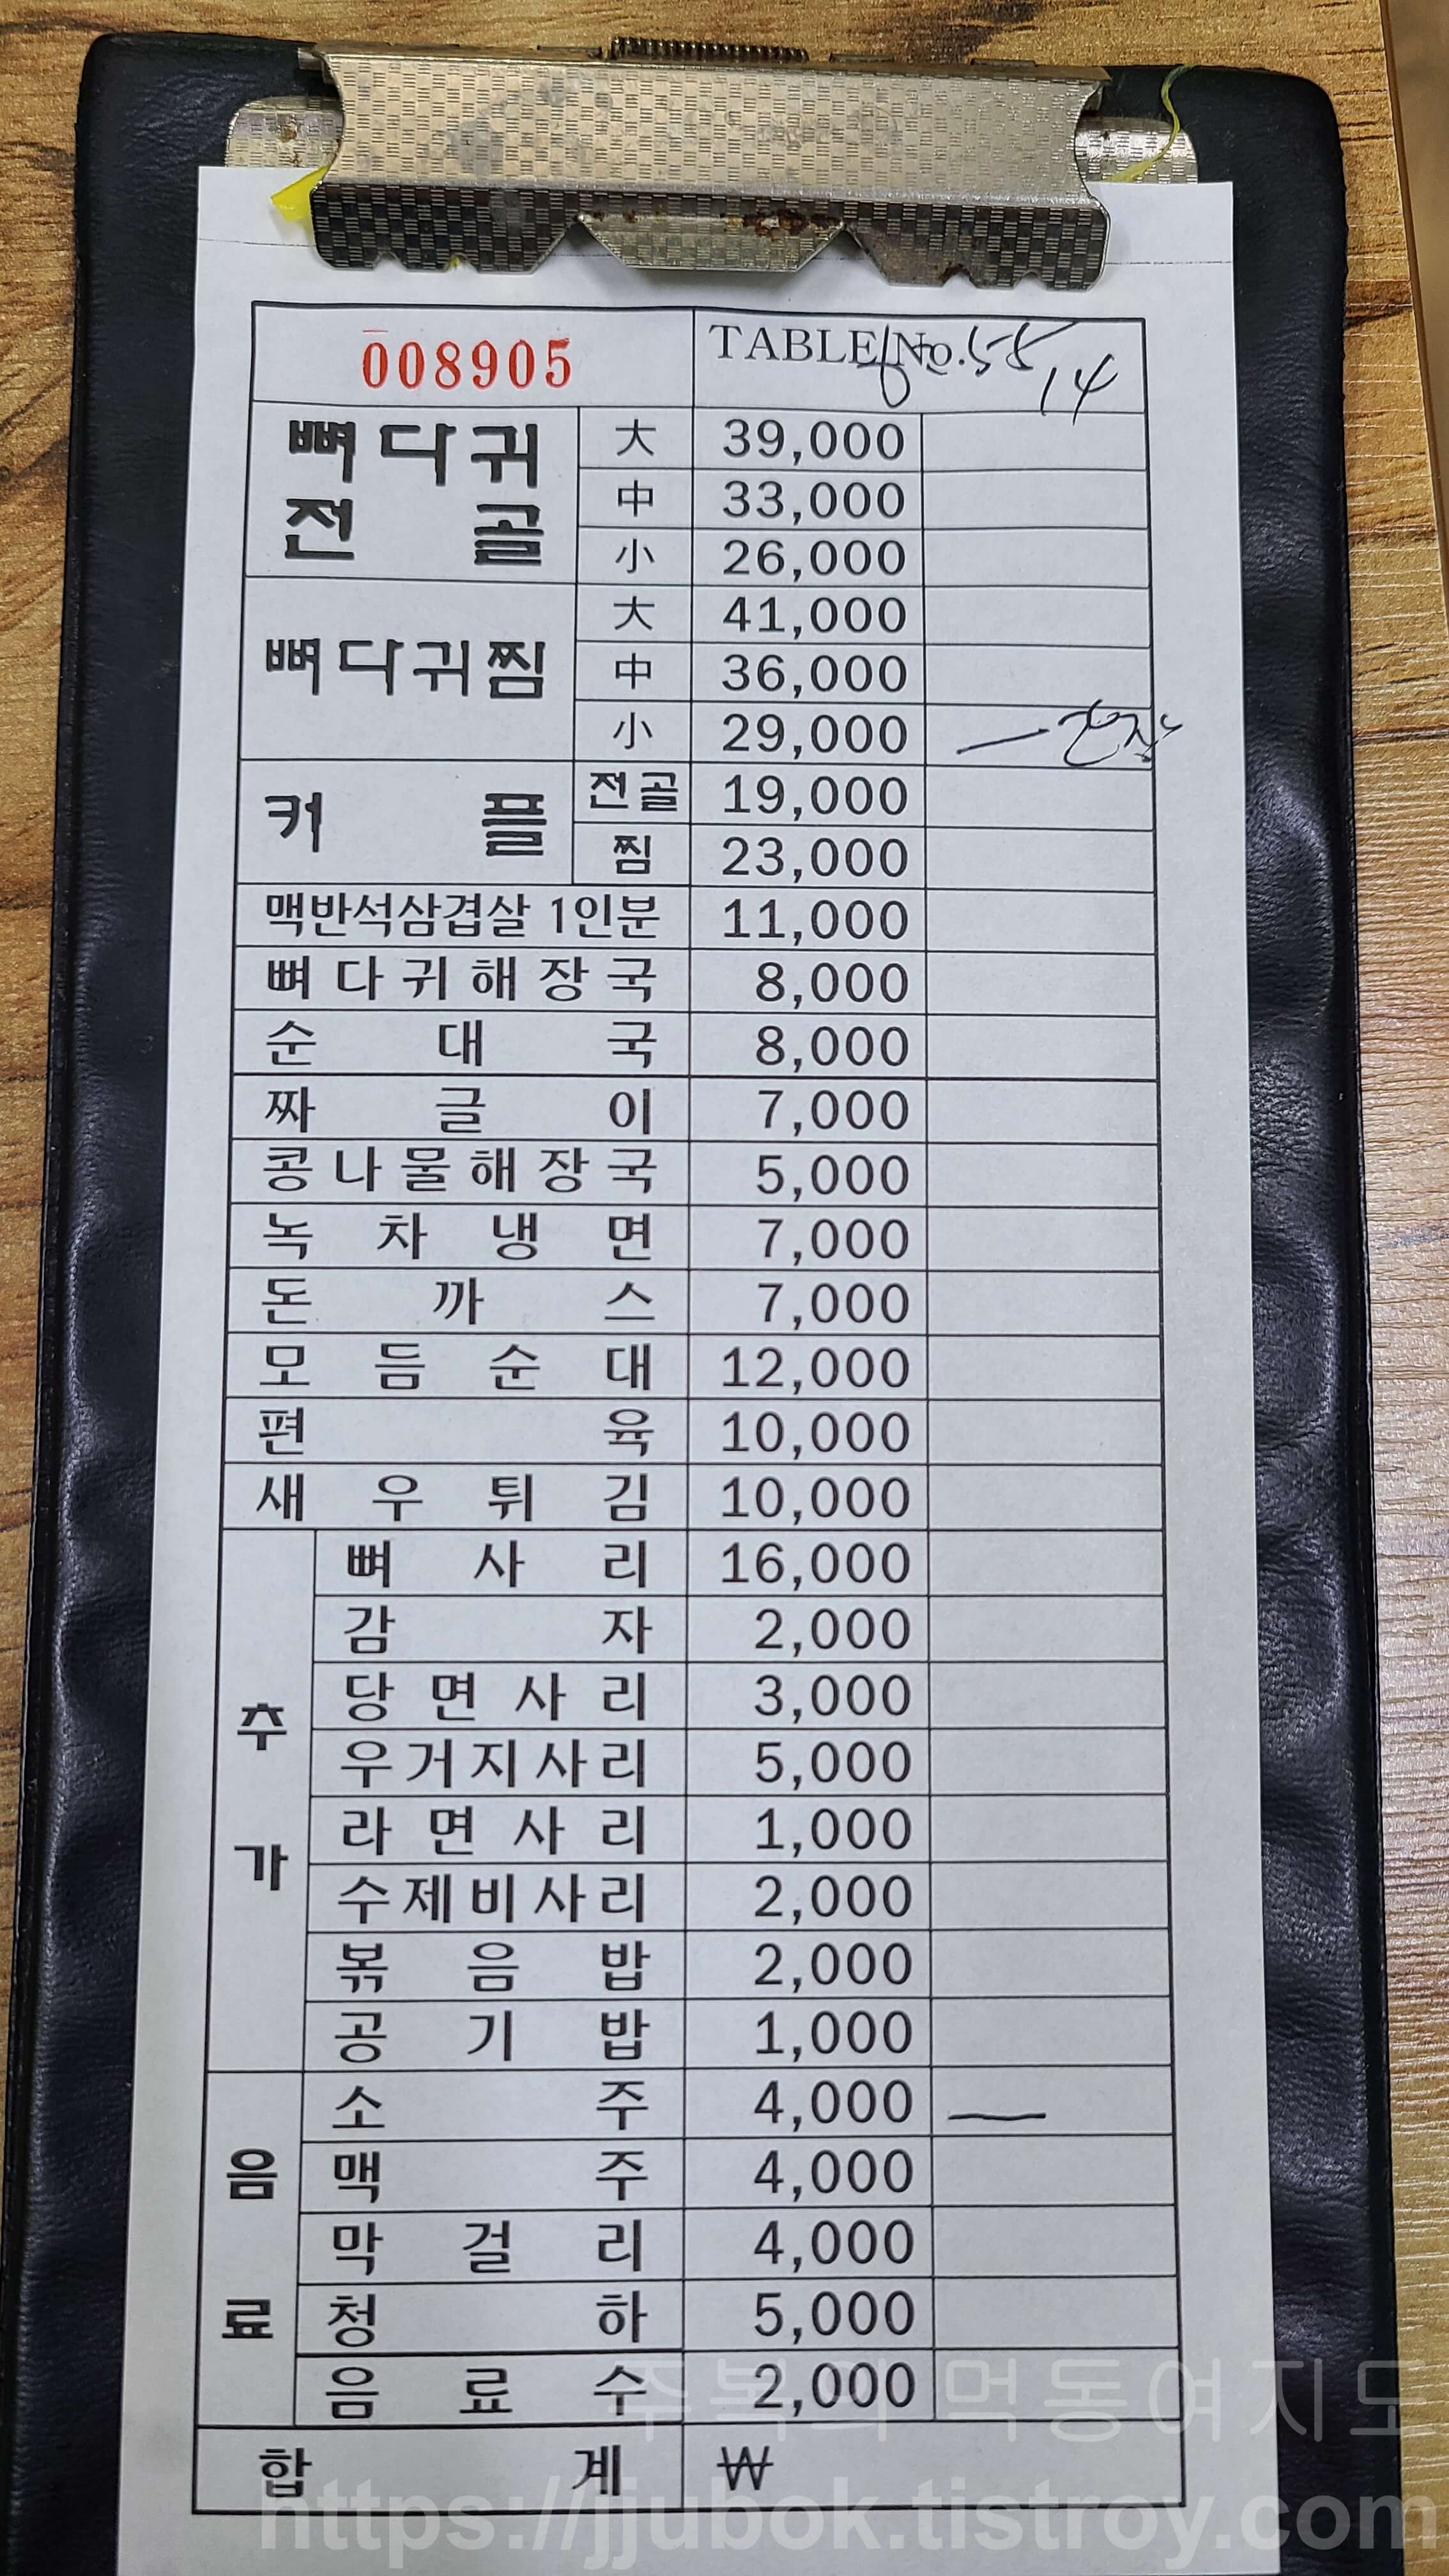 008905 TABLE No.
14
뼈다귀전골 大 39,000
中 33,000
小 26,000
뼈다귀찜 大 41,000
中 36,000
小 29,000 — 간장
커플 전골 19,000
찜 23,000
맥반석삼겹살 1인분 11,000
뼈다귀해장국 8,000
순대국 8,000
짜글이 7,000
콩나물해장국 5,000
녹차냉면 7,000
돈까스 7,000
모듬순대 12,000
편육 10,000
새우튀김 10,000
추가
뼈사리 16,000
감자 2,000
당면사리 3,000
우거지사리 5,000
라면사리 1,000
수제비사리 2,000
볶음밥 2,000
공기밥 1,000
음료
소주 4,000 —
맥주 4,000
막걸리 4,000
청하 5,000
음료수 2,000
합계 ₩
주복의 먹동여지도
https://jjubok.tistroy.com